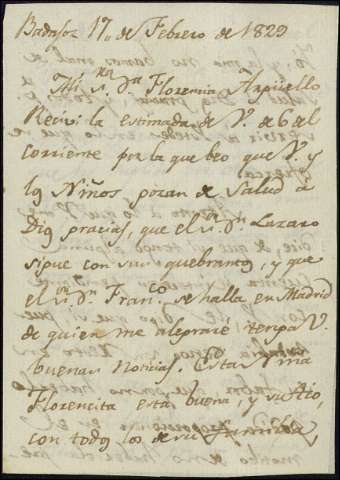 Badajoz 17 de Febrero de 1829
Mi Sra. Da. Florencia Arguello
Recivi la estimada de V. de 6 del
corriente por la que beo que V. y
los Niños gozan de Salud à
Dios gracias, que el Sr. Dn. Lazaro
sigue con sus quebrantos, y que
el Sr. Dn. Franco. se halla en Madrid
de quien me alegrare tenga V.
buenas noticias. Esta mia
Florencita està buena, y su tio,
con todos los de su familia